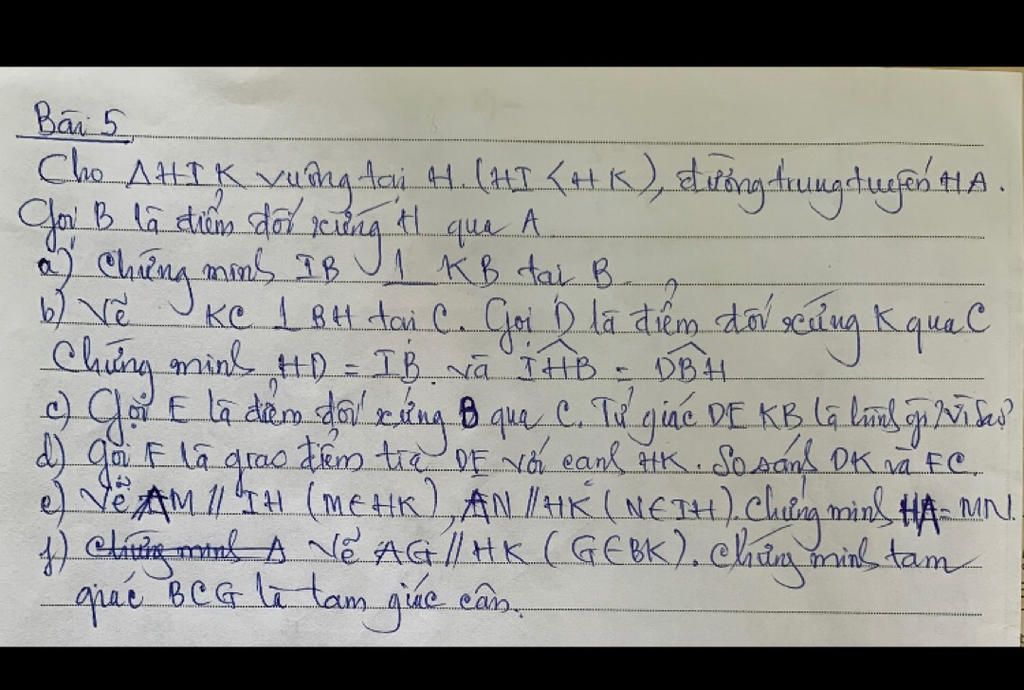 Bài 5
Cho ΔHIK vuông tại H. (HI < HK), đường trung tuyến HA.
Gọi B là điểm đối xứng H qua A
a) Chứng minh IB ⊥ KB tại B.
b) Vẽ KC ⊥ BH tại C. Gọi D là điểm đối xứng K qua C
Chứng minh HD = IB và \widehat{IHB} = \widehat{DBH}
c) Gọi E là điểm đối xứng B qua C. Tứ giác DEKB là hình gì? Vì sao?
d) Gọi F là giao điểm tia DE với cạnh HK. So sánh DK và FC.
e) Vẽ AM // IH (M ∈ HK), AN // HK (N ∈ IH). Chứng minh HA = MN.
f) Chứng minh A Vẽ AG // HK (G ∈ BK). Chứng minh tam
giác BCG là tam giác cân.